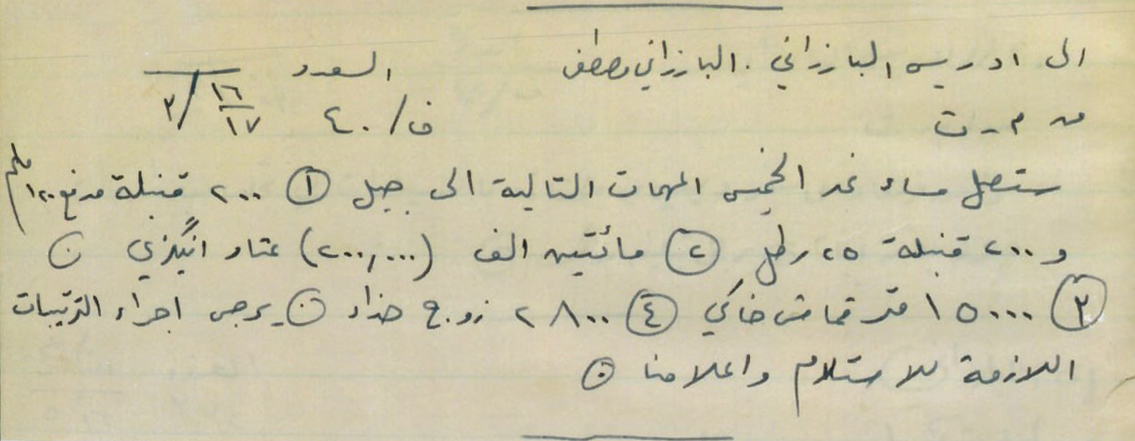 الى ادريس البارزاني . البارزاني مصطفى العدد
من م.ت ف/٤٠ ١٦/١٧/٣
ستصل مساء غد الخميس المهمات التالية الى جبل ① ٢٠٠ قنبلة مدفع ١٢٠ ملم
و ٢٠٠ قنبلة ٢٥ رطل ② مائتين الف (٢٠٠,٠٠٠) عتاد انگليزي ⊙
③ ١٥٠٠٠ متر قماش خاكي ④ ٢٨٠٠ زوج حذاء ⊙ يرجى اجراء الترتيبات
اللازمة للاستلام واعلامنا ⊙